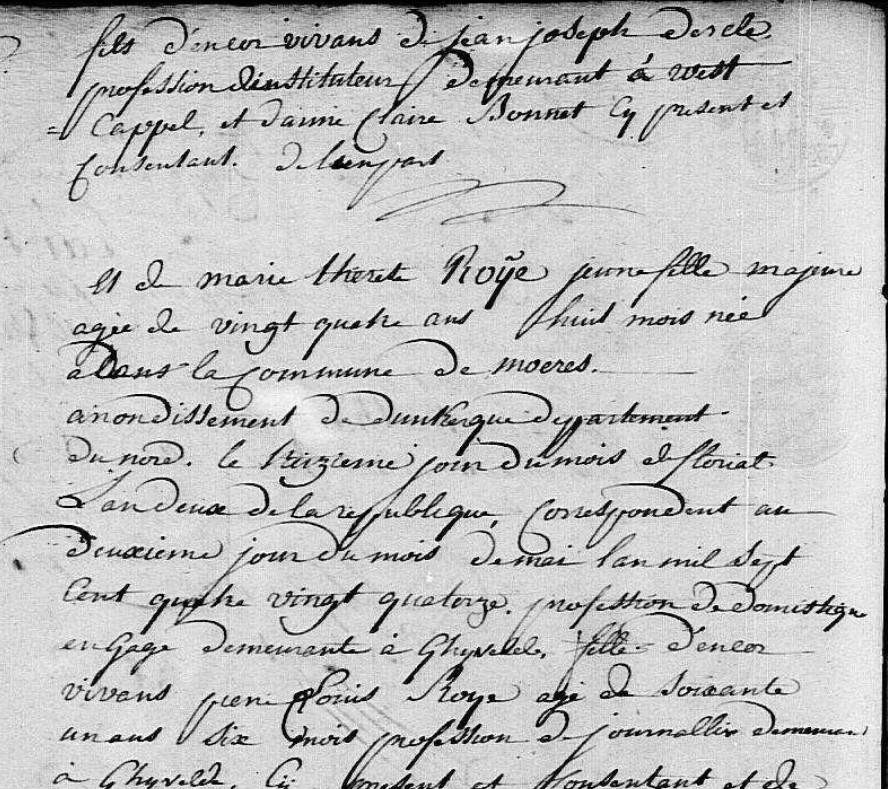 fils d'encor vivans de jean joseph Descle
profession d'instituteur Demeurant à West
= Cappel, et d'anne Claire Bonnet Cy present et
Consentant. de l'un part
Et de marie therese Roÿe jeune fille majeure
agée de vingt quatre ans huit mois née
Dans la Commune de moeres.
arrondissement de Dunkerque departement
Du nord. le treizieme jour du mois de floreal
L'an deux de la republique, Correspondent au
deuxieme jour du mois de mai l'an mil sept
Cent quatre vingt quatorze. profession de Domistique
en Gage demeurante à Ghyvelde, fille d'encor
vivans piere Louis Roye agé de soixante
un ans six mois profession de journallier demeurant
à Ghyvelde, Cy present et Consentant et de